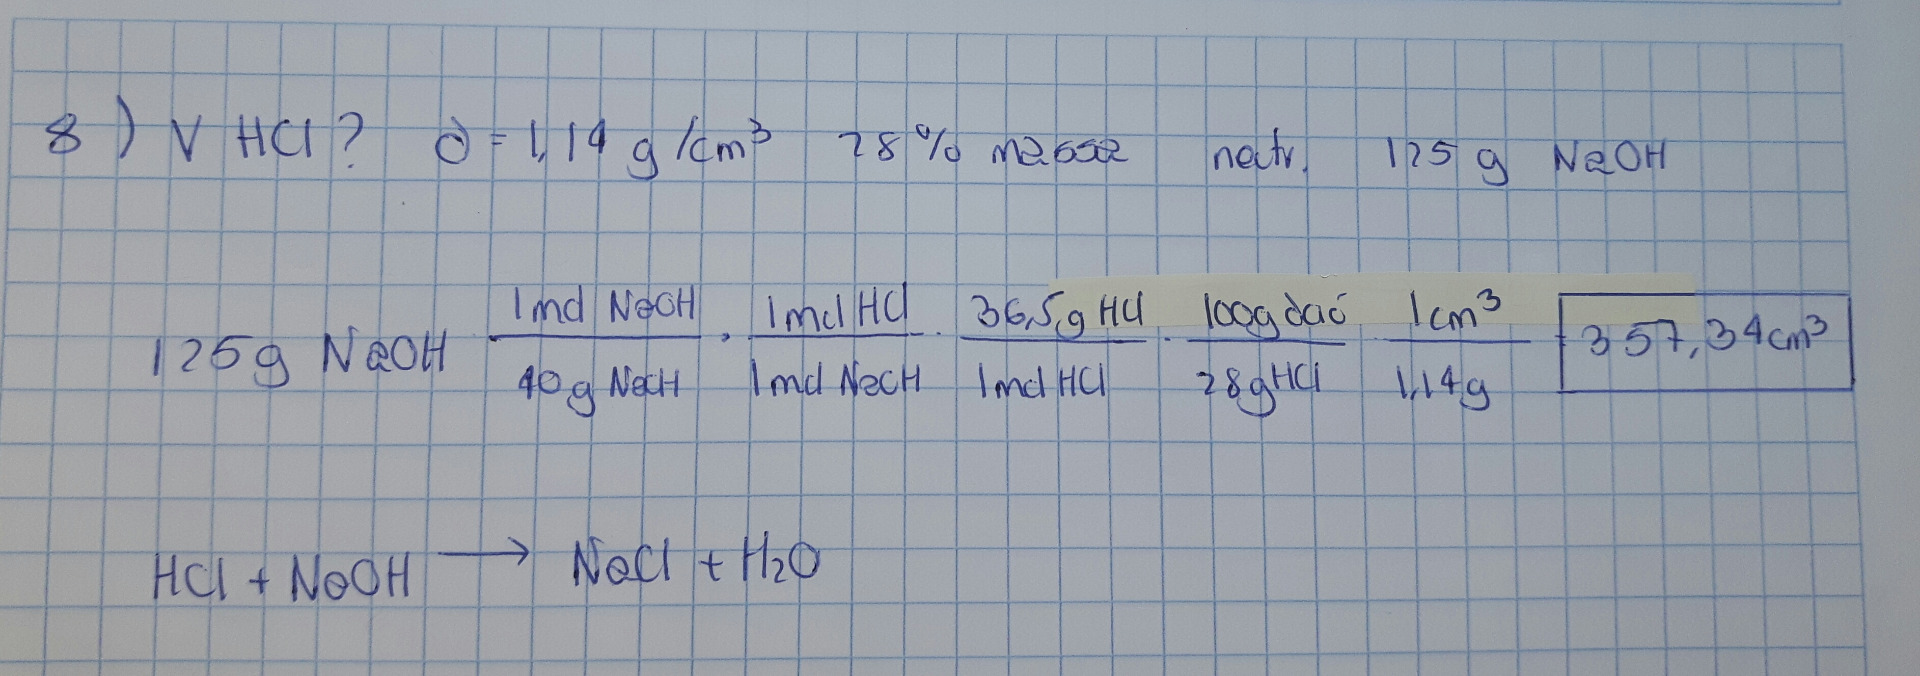 8) V HCl? d = 1,14 g/cm³ 28% massa neutr. 125 g NaOH
125g NaOH 1mol NaOH / 40g NaOH · 1mol HCl / 1mol NaOH · 36,5g HCl / 1mol HCl · 100g dació / 28g HCl 1cm³ / 1,14g = 357,34cm³
HCl + NaOH → NaCl + H₂O